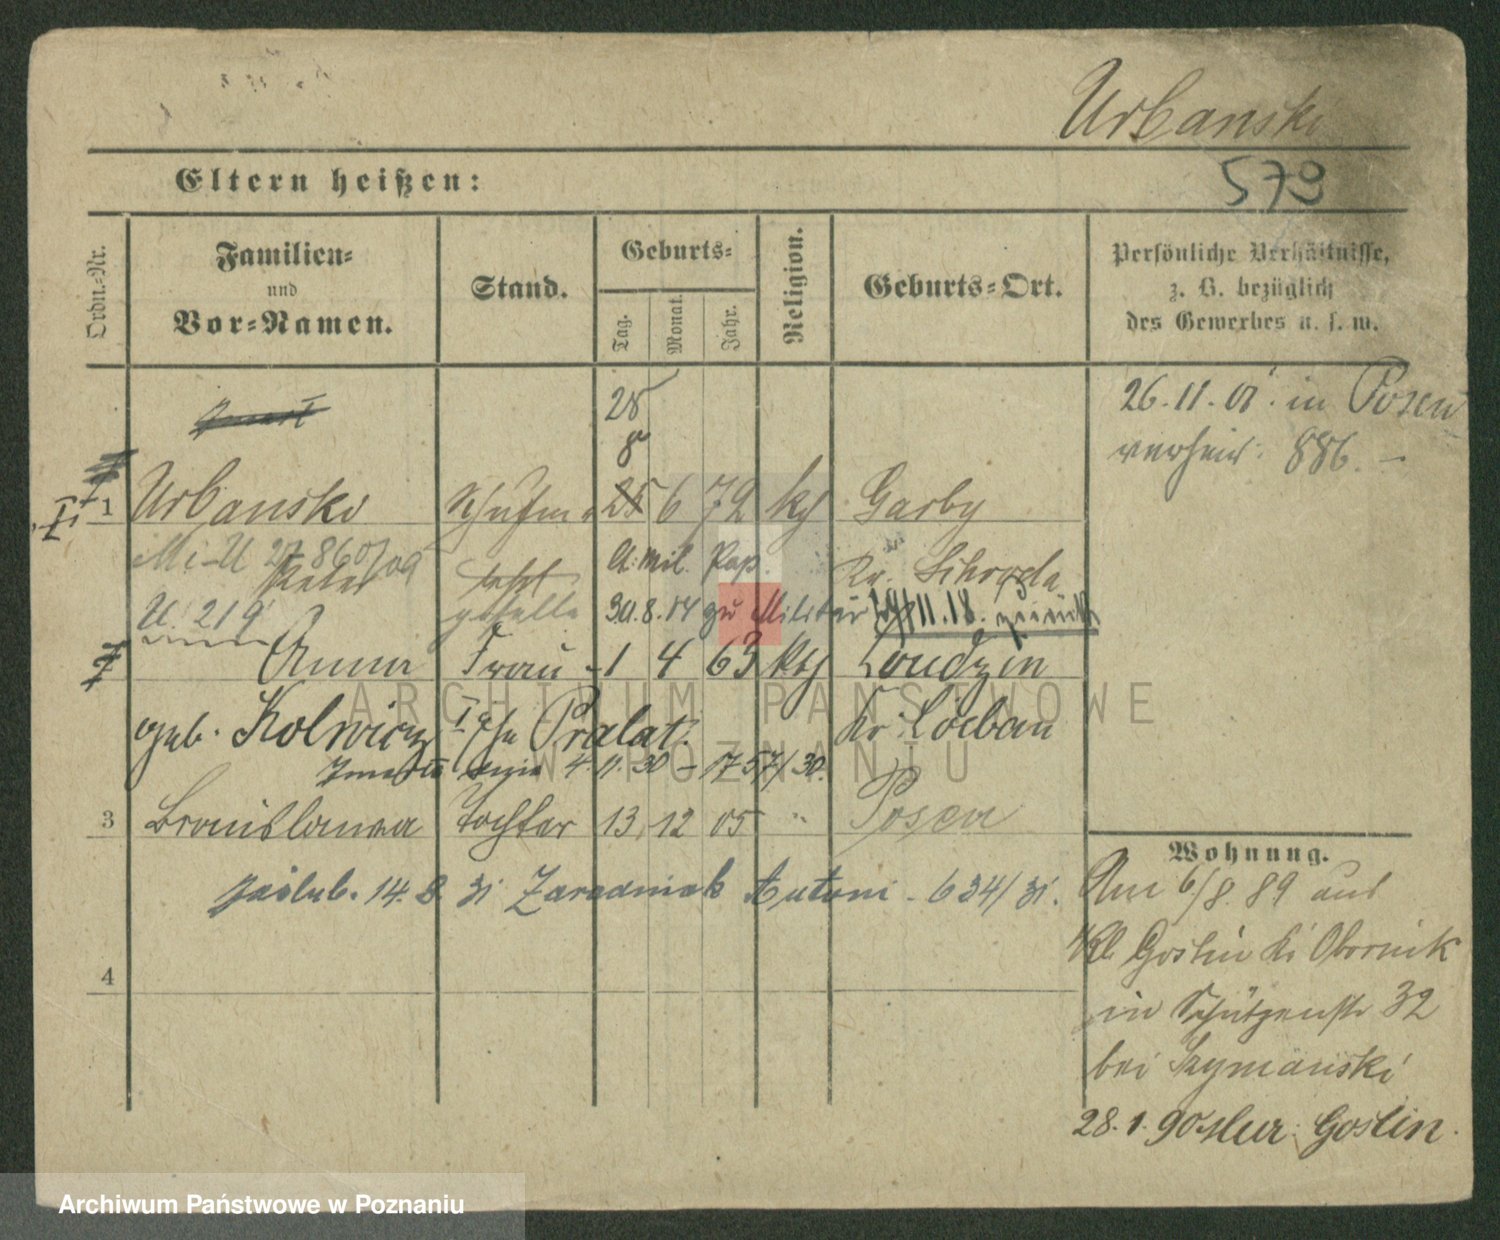 Urbanski
579
Eltern heißen:
Ordn.-Nr.
Familien-
und
Vor-Namen.
Stand.
Geburts-
Tag.
Monat.
Jahr.
Religion.
Geburts-Ort.
Persönliche Verhältnisse,
z. B. bezüglich
des Gewerbes u. s. w.
26.11.01. in Posen
verheir. 886. –
25
8
1 Urbanski 25 6 72 kth Garby
Mi-U 27 860/09
Peter
A. mil. Pap.
Kr. Schroda
U. 219
geselle
30.8.14 zu Militär 19/11.18. zurück
Anna Frau 1 4 63 kth Londzyn
geb. Kolwicz I Ehe Pralat.
Kr. Löbau
4.11.30 – 1757/30.
3 Bronislawa Tochter 13 12 05 " Posen
zaślub. 14.8.31 Zaradniak Antoni – 634/31.
4
Wohnung.
Am 6/8.89 aus
Kl. Goslin Kr. Obornik
in Schützenstr 32
bei Szymanski
28.1.90 Mur. Goslin.
ARCHIWUM PAŃSTWOWE
W POZNANIU
Archiwum Państwowe w Poznaniu